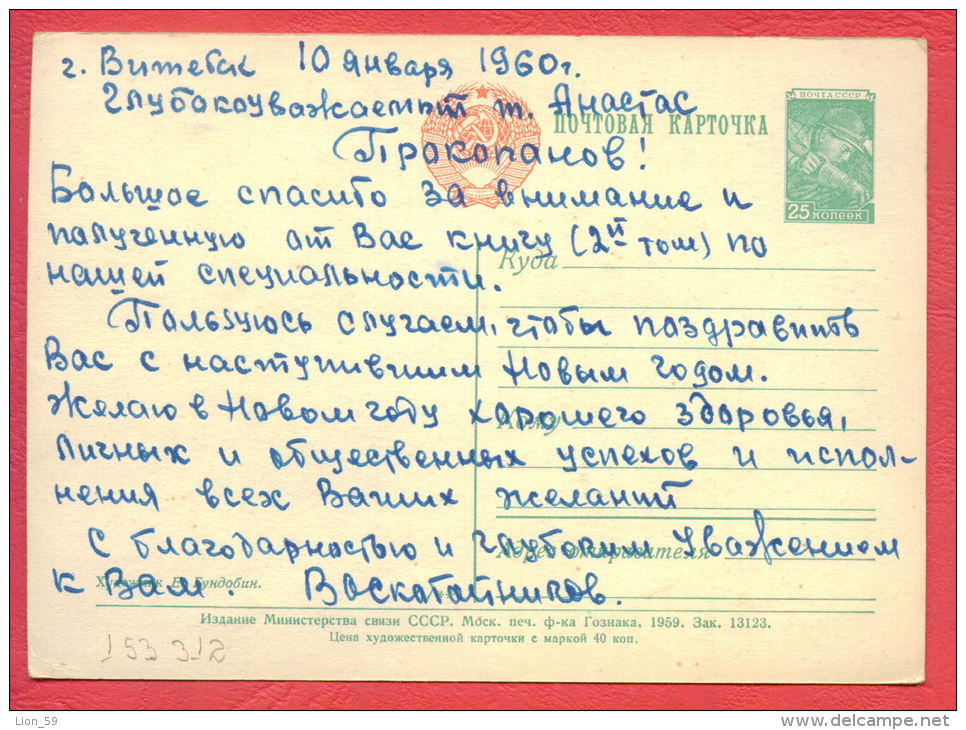 г. Витебск 10 января 1960г.
Глубокоуважаемый т. Анастас
ПОЧТА СССР
ПОЧТОВАЯ КАРТОЧКА
Прокопанов!
25 КОПЕЕК
Большое спасибо за внимание и
полученную от Вас книгу (2й том) по
Куда
нашей специальности.
Пользуюсь случаем, чтобы поздравить
Вас с наступившим Новым годом.
Желаю в Новом году хорошего здоровья,
Кому
личных и общественных успехов и испол-
нения всех Ваших желаний
С благодарностью и глубоким уважением
Адрес отправителя
Художник Е. Гундобин.
к Вам.
Издание Министерства связи СССР. Моск. печ. ф-ка Гознака. 1959. Зак. 13123.
Цена художественной карточки с маркой 40 коп.
153312
Lion_59
delcampe.net